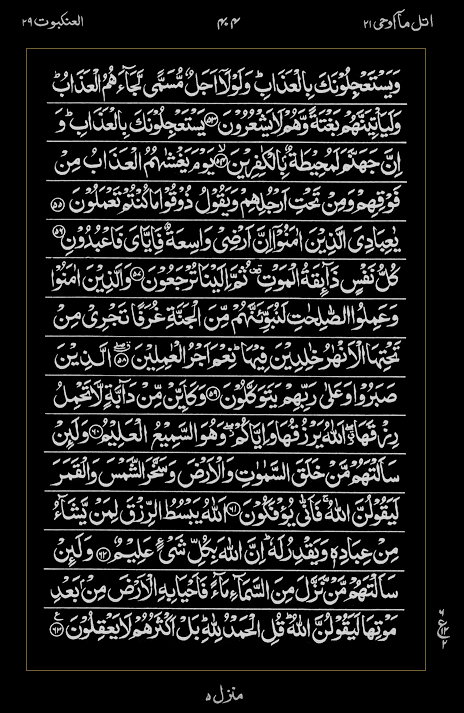 اتل مآ اوحی ۲۱ ۴۰۴ العنكبوت ۲۹
وَيَسْتَعْجِلُوْنَكَ بِالْعَذَابِ ؕ وَلَوْلَاۤ اَجَلٌ مُّسَمًّى لَّجَآءَهُمُ الْعَذَابُ ؕ
وَلَيَاْتِيَنَّهُمْ بَغْتَةً وَّهُمْ لَا يَشْعُرُوْنَ ۵۳ يَسْتَعْجِلُوْنَكَ بِالْعَذَابِ ؕ وَ
اِنَّ جَهَنَّمَ لَمُحِيْطَةٌۢ بِالْكٰفِرِيْنَ ۙ ۵۴ يَوْمَ يَغْشٰىهُمُ الْعَذَابُ مِنْ
فَوْقِهِمْ وَمِنْ تَحْتِ اَرْجُلِهِمْ وَيَقُوْلُ ذُوْقُوْا مَا كُنْتُمْ تَعْمَلُوْنَ ۵۵
يٰعِبَادِيَ الَّذِيْنَ اٰمَنُوْۤا اِنَّ اَرْضِيْ وَاسِعَةٌ فَاِيَّايَ فَاعْبُدُوْنِ ۵۶
كُلُّ نَفْسٍ ذَآئِقَةُ الْمَوْتِ ۟ ثُمَّ اِلَيْنَا تُرْجَعُوْنَ ۵۷ وَالَّذِيْنَ اٰمَنُوْا
وَعَمِلُوا الصّٰلِحٰتِ لَنُبَوِّئَنَّهُمْ مِّنَ الْجَنَّةِ غُرَفًا تَجْرِيْ مِنْ
تَحْتِهَا الْاَنْهٰرُ خٰلِدِيْنَ فِيْهَا ؕ نِعْمَ اَجْرُ الْعٰمِلِيْنَ ۵۸ الَّذِيْنَ
صَبَرُوْا وَعَلٰى رَبِّهِمْ يَتَوَكَّلُوْنَ ۵۹ وَكَاَيِّنْ مِّنْ دَآبَّةٍ لَّا تَحْمِلُ
رِزْقَهَا ۖ اللّٰهُ يَرْزُقُهَا وَاِيَّاكُمْ ۖ وَهُوَ السَّمِيْعُ الْعَلِيْمُ ۶۰ وَلَئِنْ
سَاَلْتَهُمْ مَّنْ خَلَقَ السَّمٰوٰتِ وَالْاَرْضَ وَسَخَّرَ الشَّمْسَ وَالْقَمَرَ
لَيَقُوْلُنَّ اللّٰهُ ۚ فَاَنّٰى يُؤْفَكُوْنَ ۶۱ اَللّٰهُ يَبْسُطُ الرِّزْقَ لِمَنْ يَّشَآءُ
مِنْ عِبَادِهٖ وَيَقْدِرُ لَهٗ ؕ اِنَّ اللّٰهَ بِكُلِّ شَيْءٍ عَلِيْمٌ ۶۲ وَلَئِنْ
سَاَلْتَهُمْ مَّنْ نَّزَّلَ مِنَ السَّمَآءِ مَآءً فَاَحْيَا بِهِ الْاَرْضَ مِنْۢ بَعْدِ
مَوْتِهَا لَيَقُوْلُنَّ اللّٰهُ ؕ قُلِ الْحَمْدُ لِلّٰهِ ؕ بَلْ اَكْثَرُهُمْ لَا يَعْقِلُوْنَ ۶۳ ع
۶
ع ۱۲
۲
منزل ۵